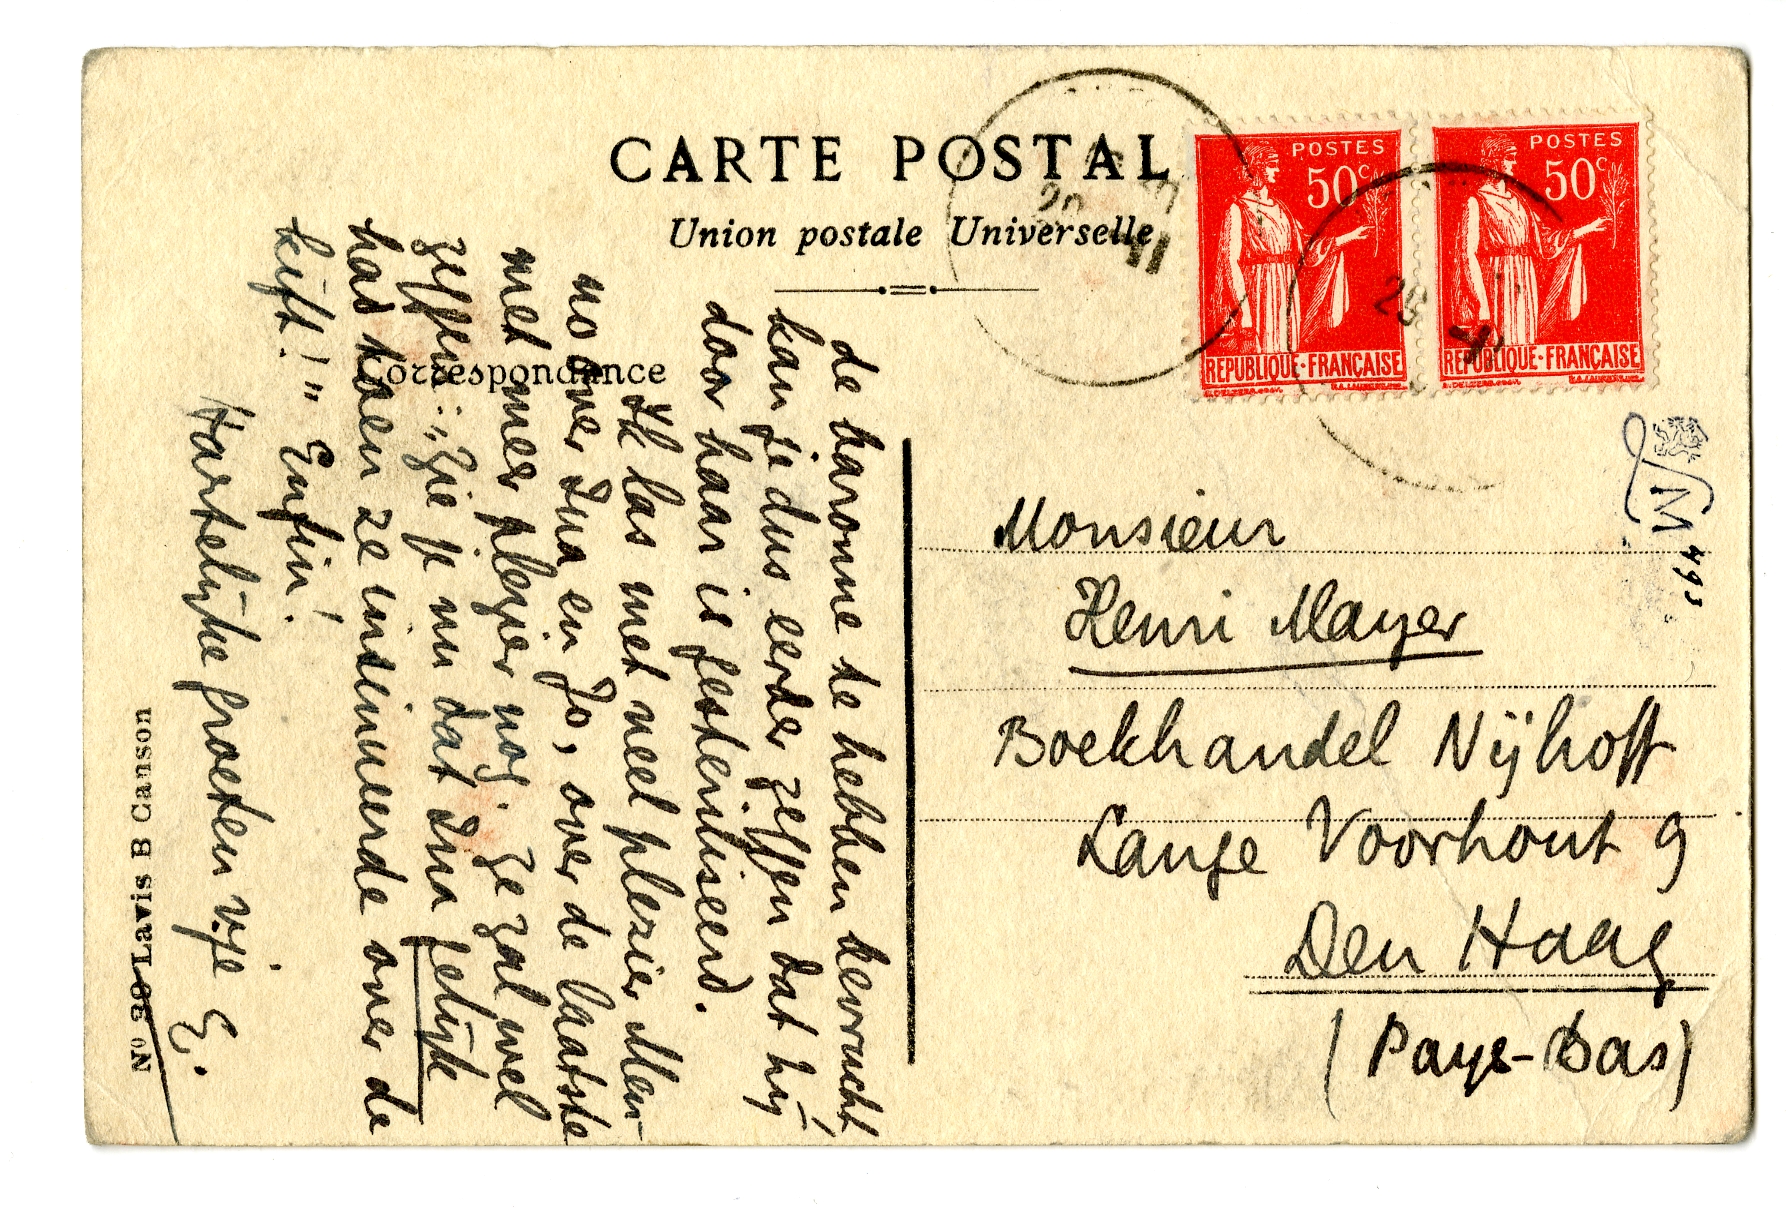 CARTE POSTAL
Union postale Universelle
Correspondance
POSTES
50c
REPUBLIQUE·FRANÇAISE
POSTES
50c
REPUBLIQUE·FRANÇAISE
de baronne te hebben bevrucht,
kan je dus eerder zeggen dat hij
door haar is gesteriliseerd.
Ik las met veel plezier Mei-
no over Ina en Jo, over de laatste
met meer plezier nog. Ze zal wel
zeggen: „Zie je nu dat Ina gelijk
had toen ze insinueerde over de
kift!" Enfin!
Hartelijke groeten v. je
E.
Monsieur
Henri Mayer
Boekhandel Nijhoff
Lange Voorhout 9
Den Haag
(Pays-Bas)
Nº 30 Lavis B Canson